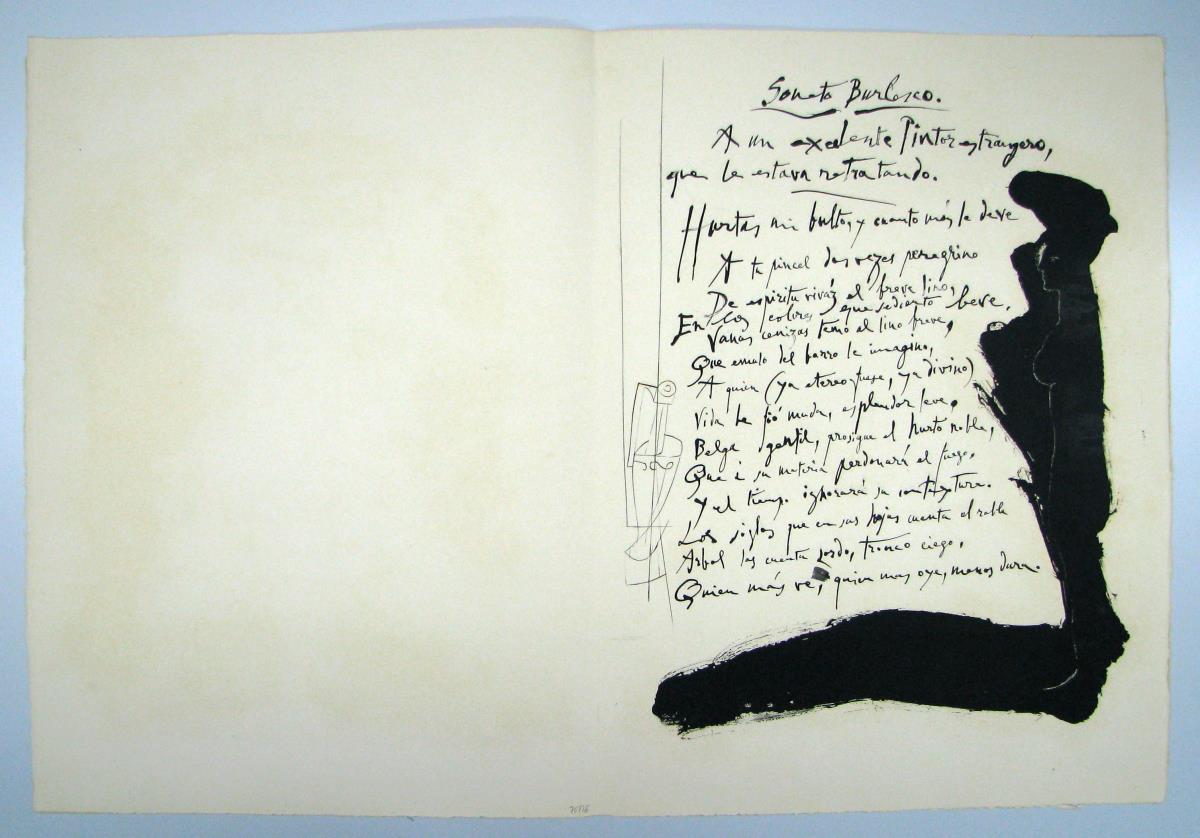 Soneto Burlesco.
A un exelente Pintor estrangero,
que le estava retratando.
Hurtas mi bulto, y cuanto más le deve
A tu pincel dos vezes peregrino
De espiritu viváz el breve lino,
En los colores que sediento beve.
Vanas cenizas temo al lino breve,
Que emulo del barro le imagino,
A quien (ya etereo fuese, ya divino)
Vida le fió muda, esplendor leve.
Belga gentil, prosigue el hurto noble,
Que à su materia perdonará el fuego,
Y el tiempo ignorará su contextura.
Los siglos que en sus hojas cuenta el roble
Arbol los cuenta sordo, tronco ciego,
Quien más ve, quien mas oye, menos dura.